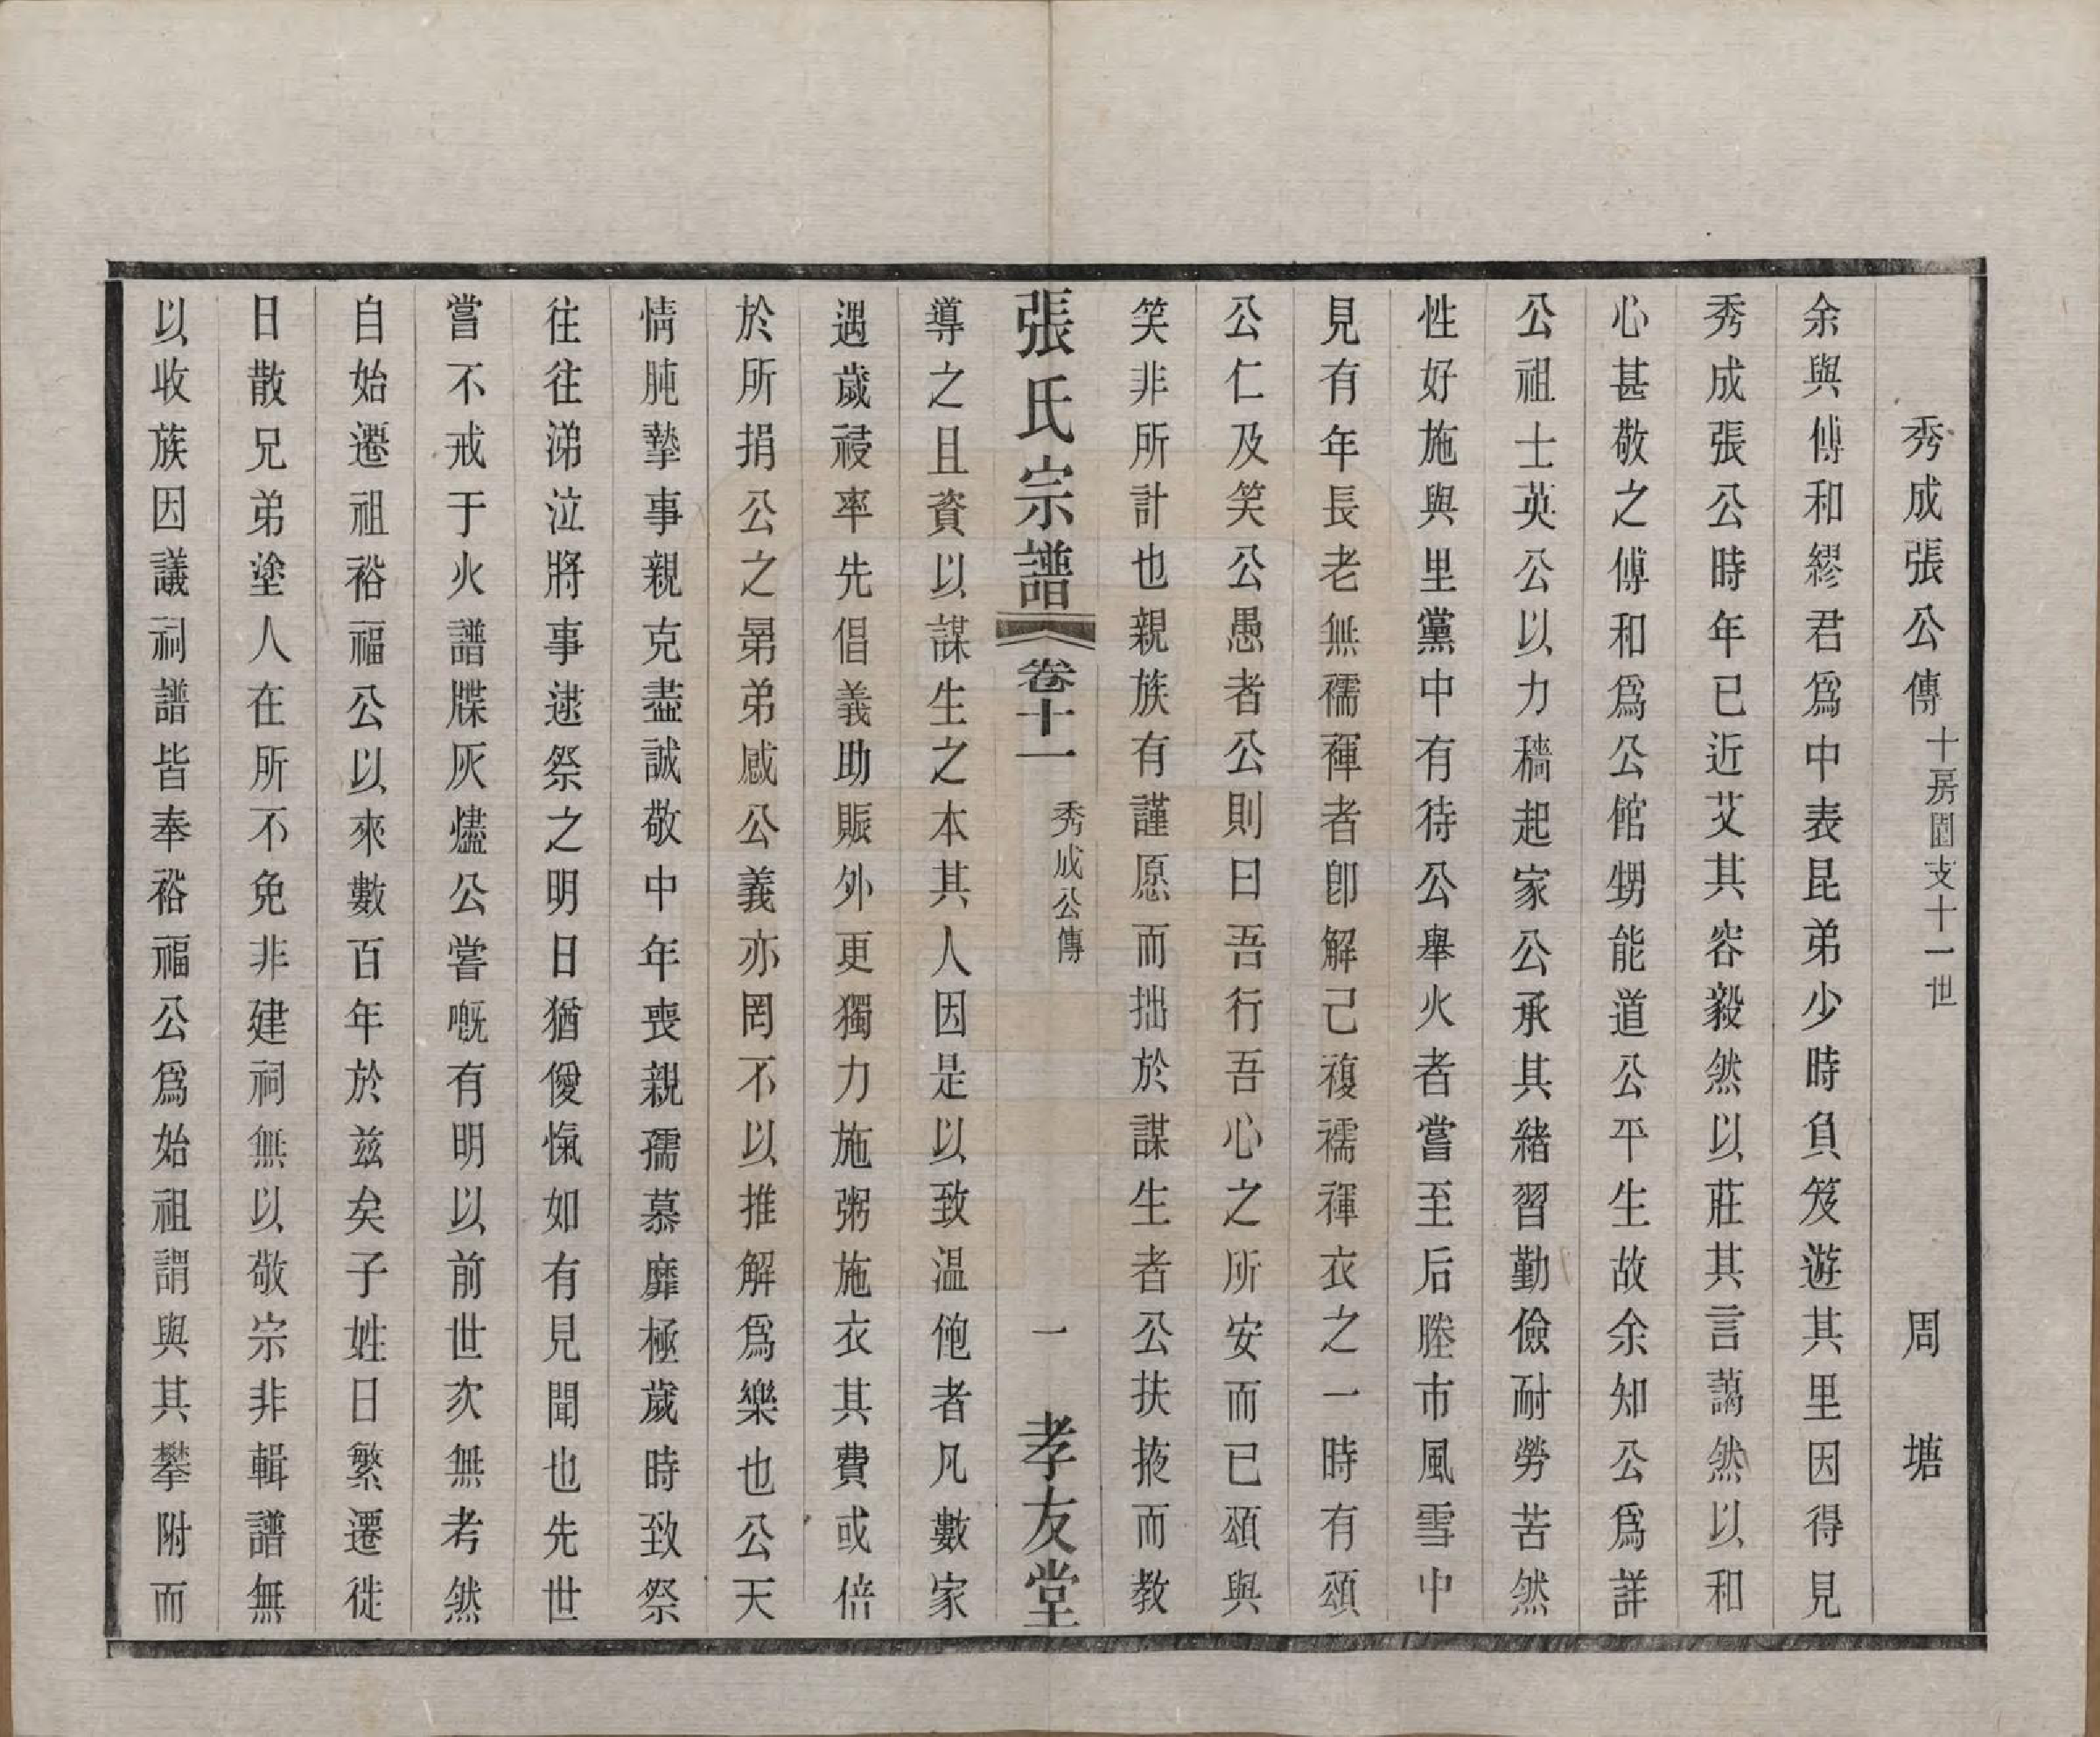 秀成張公傳十房園支十一世 周塘
余與傅和繆君爲中表昆弟少時負笈遊其里因得見
秀成張公時年已近艾其容毅然以莊其言藹然以和
心甚敬之傅和爲公館甥能道公平生故余知公爲詳
公祖士英公以力穡起家公承其緒習勤儉耐勞苦然
性好施與里黨中有待公舉火者嘗至后塍市風雪中
見有年長老無襦褌者卽解己複襦褌衣之一時有頌
公仁及笑公愚者公則曰吾行吾心之所安而已頌與
笑非所計也親族有謹愿而拙於謀生者公扶掖而教
張氏宗譜 卷十一 秀成公傳 一 孝友堂
導之且資以謀生之本其人因是以致温飽者凡數家
遇歲祲率先倡義助賑外更獨力施粥施衣其費或倍
於所捐公之晜弟感公義亦罔不以推解爲樂也公天
情肫摯事親克盡誠敬中年喪親孺慕靡極歲時致祭
往往涕泣將事逮祭之明日猶僾愾如有見聞也先世
嘗不戒于火譜牒灰燼公嘗嘅有明以前世次無考然
自始遷祖裕福公以來數百年於兹矣子姓日繁遷徙
日散兄弟塗人在所不免非建祠無以敬宗非輯譜無
以收族因議祠譜皆奉裕福公爲始祖謂與其攀附而